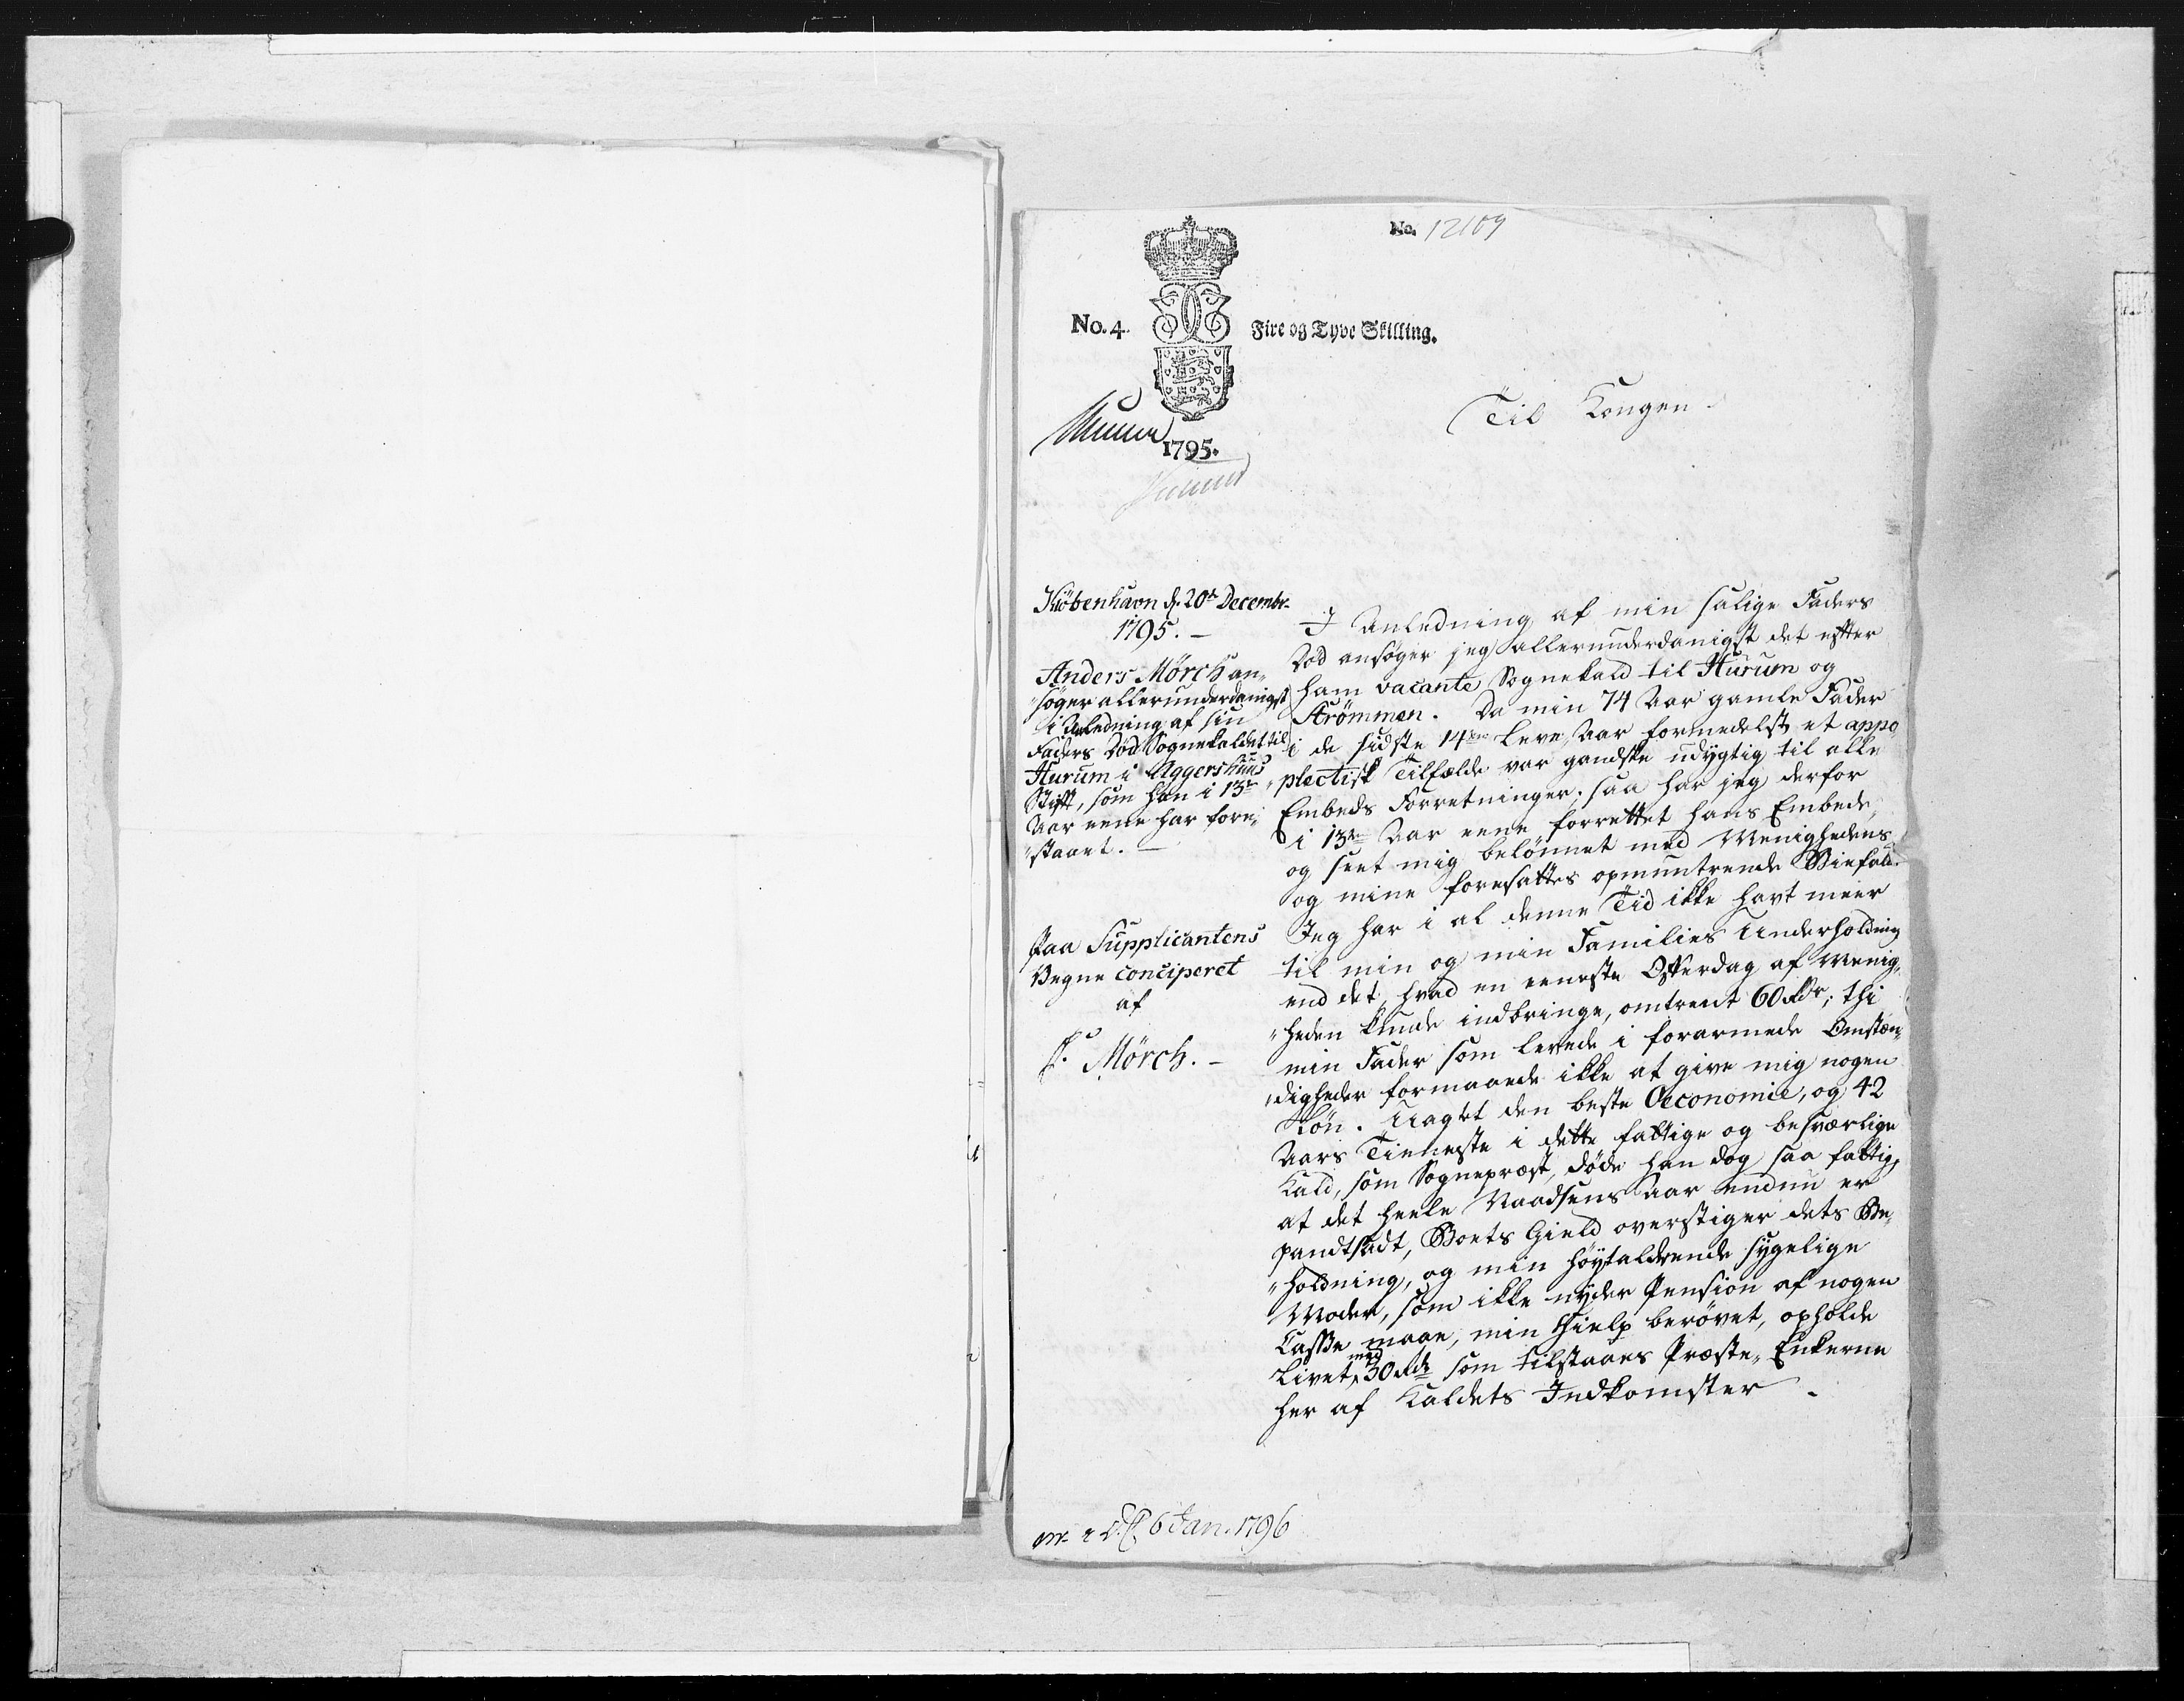 No. 12109
No. 4.
Fire og Tyve Skilling.
1795.
Til Kongen.
Kiöbenhavn d. 20de Decembr.
1795. –
Anders Mörch an„
„söger allerunderdanigst
i Anledning af sin
Faders Död Sognekaldet til
Hurum i Aggershuus
Stift, som han i 13ten
Aar eene har fore„
„staaet. –
Paa Supplicantens
Vegne conciperet
af
P. Mörch. –
I Anledning af min salige Faders
Död ansöger jeg allerunderdanigst det efter
ham vacante Sognekald til Hurum og
Strömmen. Da min 74 Aar gamle Fader
i de sidste 14ten Leve Aar formedelst et appo
„plectisk Tilfælde var gandske udygtig til alle
Embeds Forretninger; saa har jeg derfor
i 13ten Aar eene forrettet hans Embede,
og seet mig belönnet med Menighedens
og mine foresattes opmuntrende Biefald.
Jeg har i al denne Tid ikke havt meer
til min og min Families Underholdning
end det, hvad en eeneste Offerdag af Menig„
„heden kunde indbringe, omtrent 60 Rdr; thi
min Fader som levede i forarmede Omstæn„
„digheder formaaede ikke at give mig nogen
Lön. Uagtet den beste Oeconomie, og 42
Aars Tieneste i dette fattige og besværlige
Kald, som Sognepræst, döde han dog saa fattig,
at det heele Naadsens Aar endnu er
pandtsadt, Boets Gield overstiger dets Be„
„holdning, og min höytaldrende sygelige
Moder, som ikke nyder Pension af nogen
Casse maae, min Hielp berövet, opholde
Livet med 30 Rdr som tilstaaes Præste„Enkerne
her af Kaldets Indkomster.
6 Jan. 1796